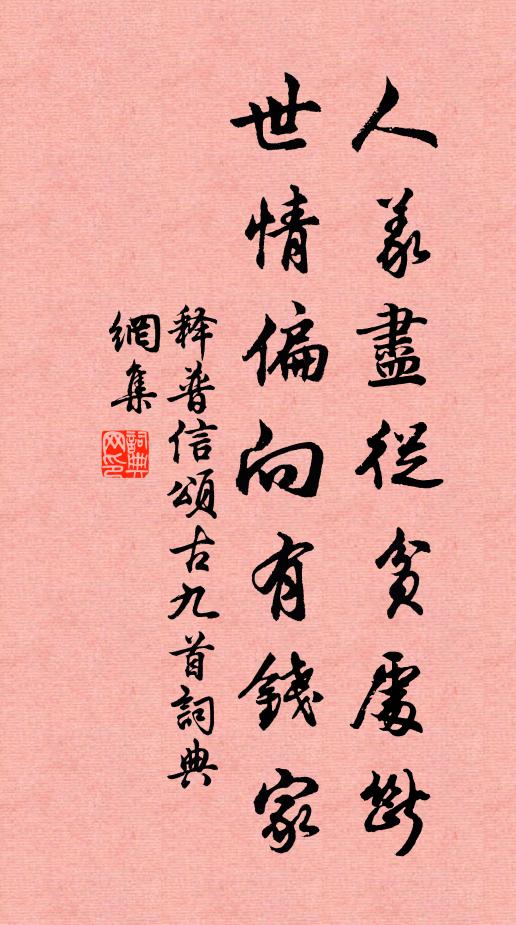 人義盡從貧處斷
世情偏向有錢家
释普信頌古九首詞典
網集
詞典網印